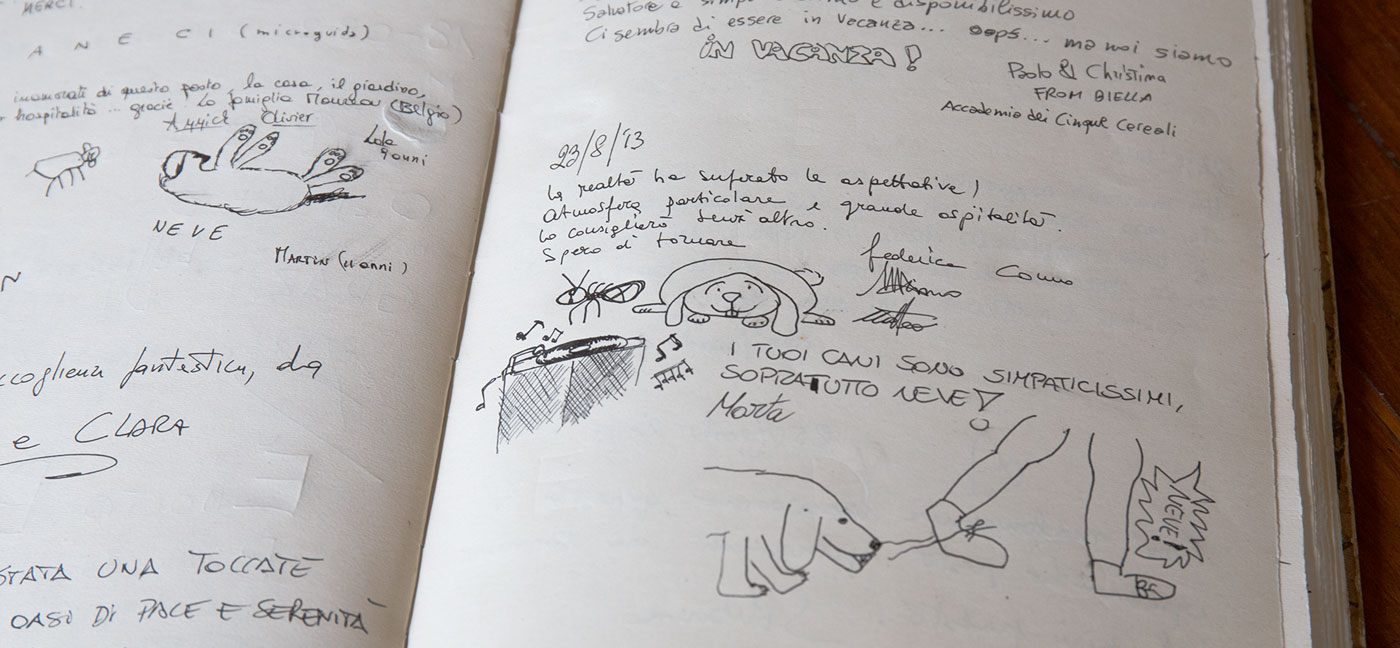 MERCI.
A N E C I (microguida)
inamorati di questo posto, la casa, il giardino,
hospitalità ... gracie, la famiglia (Belgio)
Annick Olivier
Lola
9 anni
NEVE
MARTIN (11 anni)
N
ccoglienza fantastica, da
e CLARA
STATA UNA TOCCATE
OASI DI PACE E SERENITÀ
Salvatore è disponibilissimo
Ci sembra di essere in vacanza... oops... ma noi siamo
IN VACANZA!
Paolo & Christina
FROM BIELLA
Accademia dei Cinque Cereali
23/8/'13
la realtà ha superato le aspettative!
Atmosfera particolare e grande ospitalità.
Lo consiglierò senz'altro.
Spero di tornare
Federica Como
I TUOI CANI SONO SIMPATICISSIMI,
SOPRATUTTO NEVE!
Marta
NEVE!